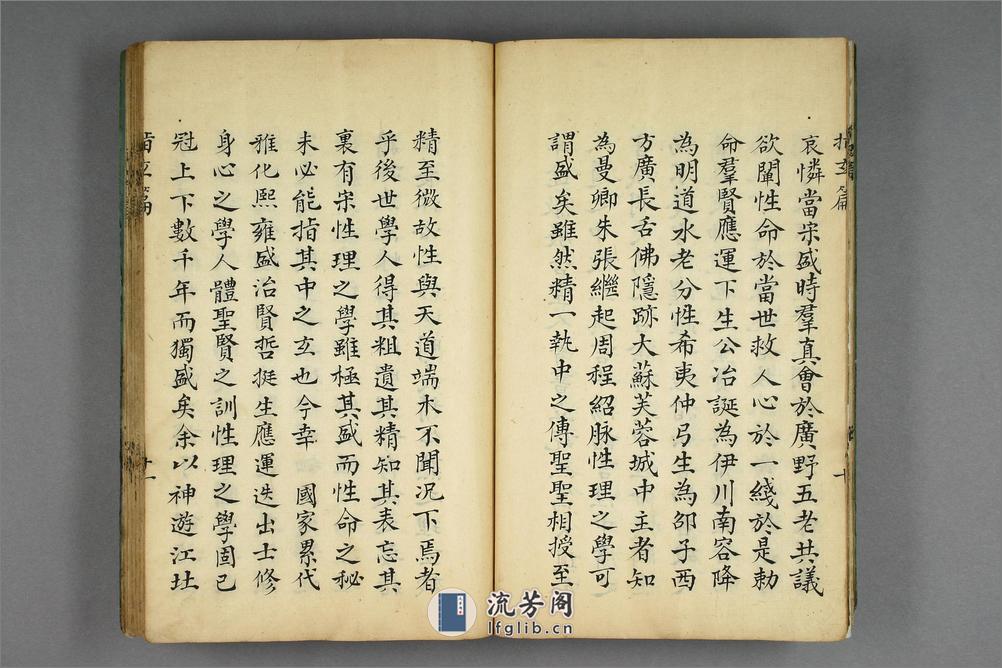 指玄篇
哀憐當宋盛時羣真會於廣野五老共議
欲闡性命於當世救人心於一綫於是勅
命羣賢應運下生公冶誕為伊川南容降
為明道水老分性希夷仲弓生為邵子西
方廣長舌佛隱跡大蘇芙蓉城中主者知
為曼卿朱張繼起周程紹脉性理之學可
謂盛矣雖然精一執中之傳聖聖相授至
精至微故性與天道端木不聞況下焉者
乎後世學人得其粗遺其精知其表忘其
裏有宋性理之學雖極其盛而性命之秘
未必能指其中之玄也今幸 國家累代
雅化熙雍盛治賢哲挺生應運迭出士修
身心之學人體聖賢之訓性理之學固已
冠上下數千年而獨盛矣余以神遊江址
指玄篇
十一
流芳阁
lfglib.cn